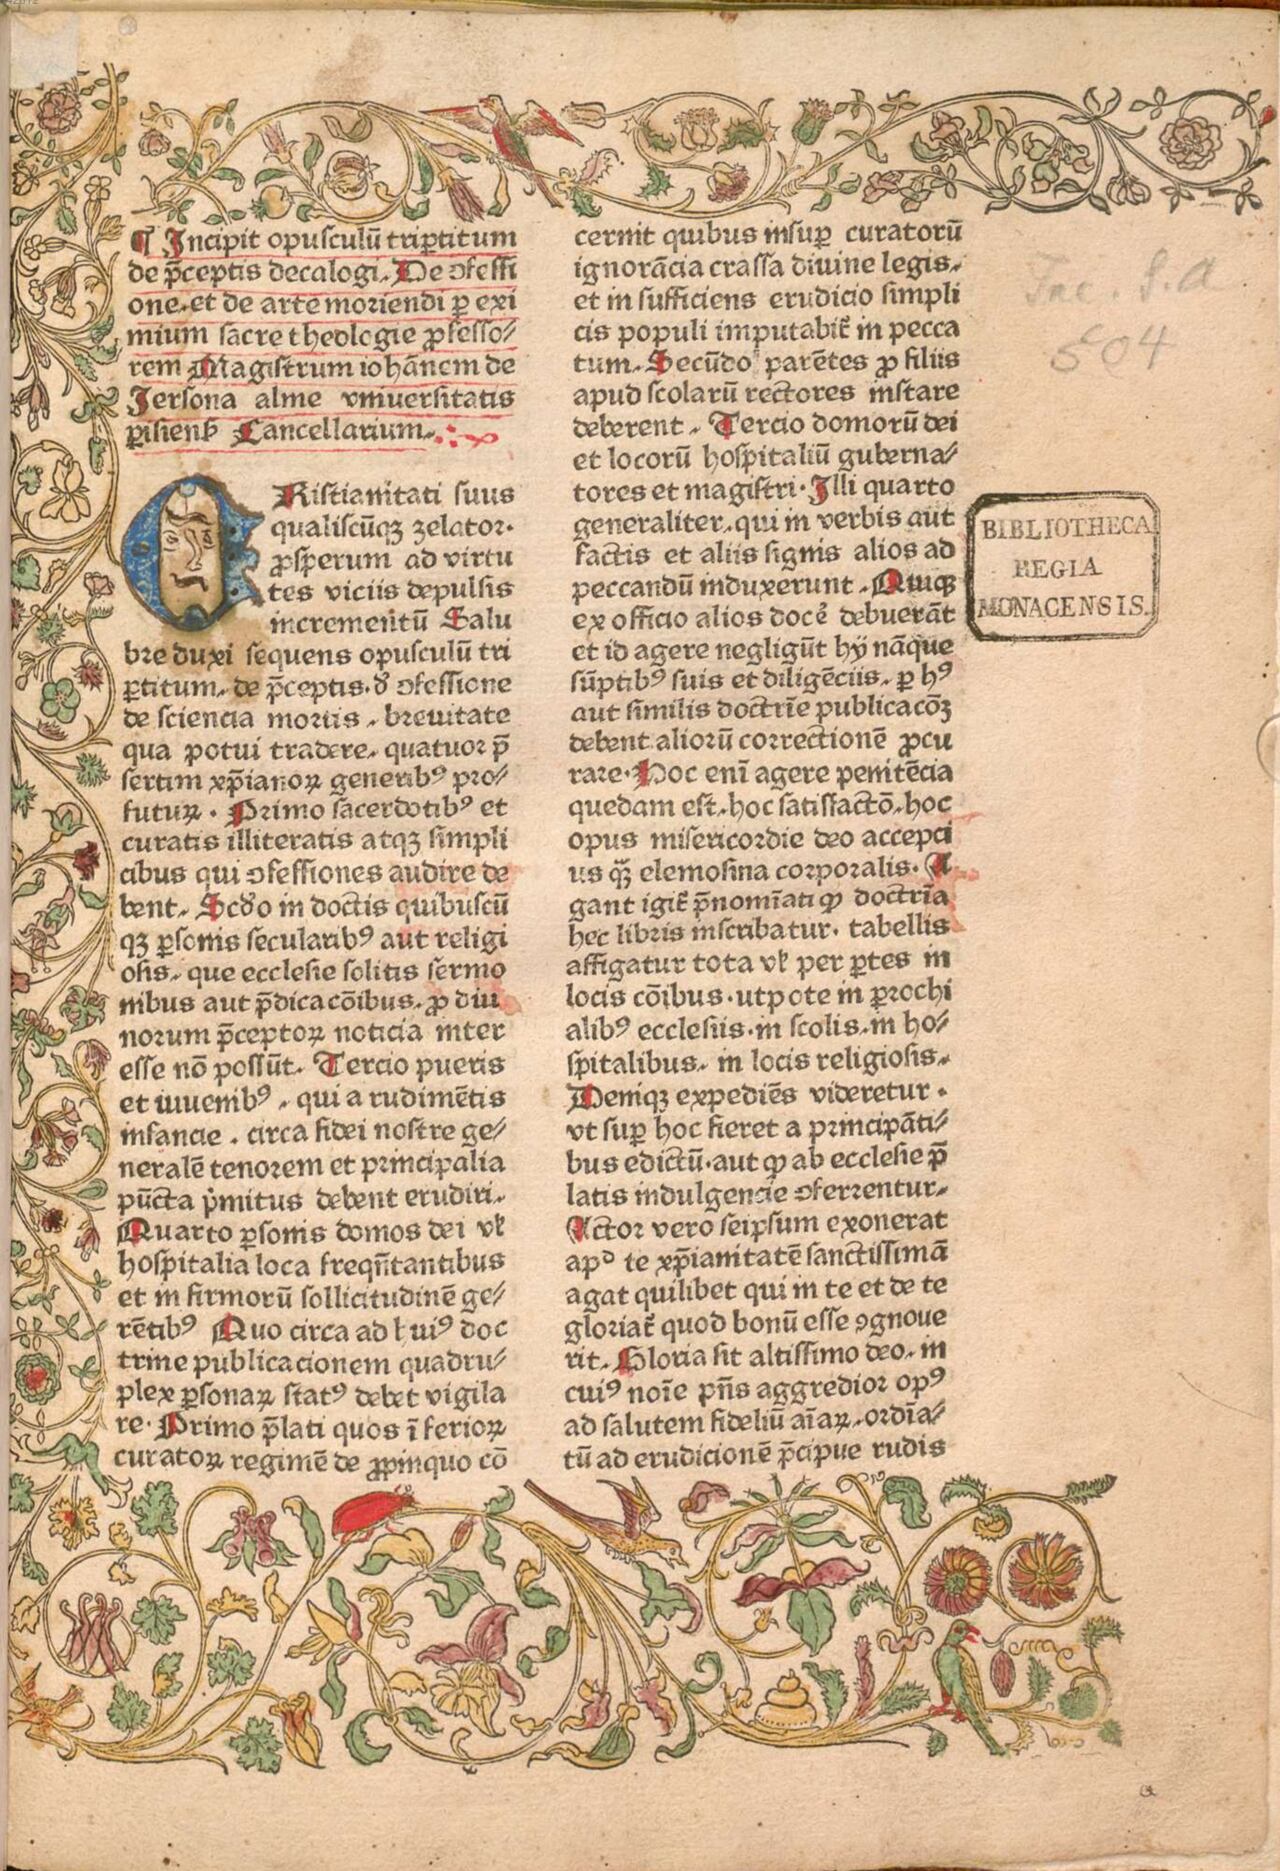 ¶ Incipit opusculū tripertitum
de p̄ceptis decalogi. De ɔfessi
one. et de arte moriendi ꝑ exi
mium sacre theologie ꝓfesso/
rem Magistrum iohānem de
Jersona alme vniuersitatis
ꝑisienꝭ Cancellarium.
CRistianitati suus
qualiscūqꝫ zelator.
ꝓsperum ad virtu
tes viciis depulsis
incrementū Salu
bre duxi sequens opusculū tri
ꝑtitum. de p̄ceptis. de ɔfessione
de sciencia mortis. breuitate
qua potui tradere. quatuor p̄
sertim xp̄ianoꝝ generibꝰ pro/
futuꝝ. Primo sacerdotibꝰ et
curatis illiteratis atqꝫ simpli
cibus qui ɔfessiones audire de
bent. Scdo in doctis quibuscū
qꝫ ꝑsonis secularibꝰ aut religi
osis. que ecclesie solitis sermo
nibus aut p̄dicacōibus. ꝓ diui
norum p̄ceptoꝝ noticia inter
esse nō possūt. Tercio pueris
et iuuenibꝰ. qui a rudimētis
infancie. circa fidei nostre ge/
neralē tenorem et principalia
pūcta pͥmitus debent erudiri.
Quarto ꝑsonis domos dei vł
hospitalia loca freqn̄tantibus
et in firmorū sollicitudinē ge/
rētibꝰ Quo circa ad huiꝰ doc
trine publicacionem quadru/
plex ꝑsonaꝝ statꝰ debet vigila
re. Primo p̄lati quos īferioꝝ
curatoꝝ regimē de ꝓpinquo cō
cernit quibus insuꝑ curatorū
ignorācia crassa diuine legis.
et in sufficiens erudicio simpli
cis populi imputabit᷑ in pecca
tum. Secūdo parētes ꝓ filiis
apud scolarū rectores instare
deberent. Tercio domorū dei
et locorū hospitaliū guberna/
tores et magistri. Illi quarto
generaliter. qui in verbis aut
factis et aliis signis alios ad
peccandū induxerunt. Quiqꝫ
ex officio alios docē debuerāt
et id agere negligūt hÿ nāque
sūptibꝰ suis et diligēciis. ꝑ hꝰ
aut similis doctrīe publicacōꝫ
debent aliorū correctionē ꝓcu
rare. Hoc enī agere penitēcia
quedam est. hoc satisfactō. hoc
opus misericordie deo accepci
us qꝫ elemosina corporalis. A
gant igit᷑ p̄nomīati ꝙ doctrīa
hec libris inscribatur. tabellis
affigatur tota vł per ꝑtes in
locis cōibus. utpote in ꝑrochi
alibꝰ ecclesiis. in scolis. in ho/
spitalibus. in locis religiosis.
Deniqꝫ expediēs videretur.
vt suꝑ hoc fieret a principāti/
bus edictū. aut ꝙ ab ecclesie p̄
latis indulgencie ɔferrentur.
Actor vero seipsum exonerat
apᵈ te xp̄ianitatē sanctissimā
agat quilibet qui in te et de te
gloriat᷑ quod bonū esse ꝯgnoue
rit. Gloria sit altissimo deo. in
cuiꝰ noīe pn̄s aggredior opꝰ
ad salutem fideliū aīaꝝ. ordīa/
tū ad erudicionē p̄cipue rudis
Inc. s. a
504
BIBLIOTHECA
REGIA
MONACENSIS.
a